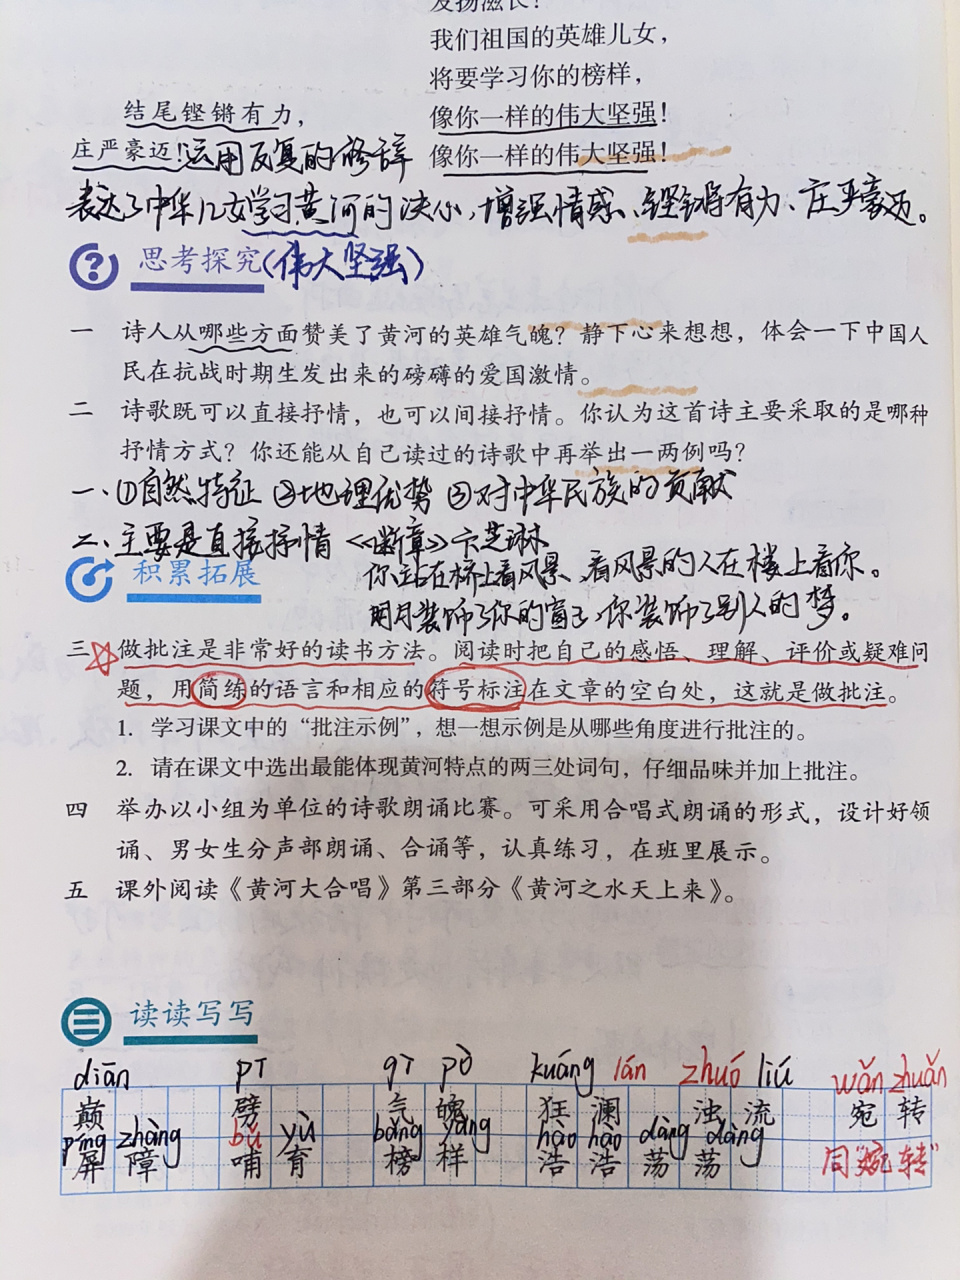 发扬滋长！
我们祖国的英雄儿女，
将要学习你的榜样，
像你一样的伟大坚强！
像你一样的伟大坚强！
结尾铿锵有力，
庄严豪迈！运用反复的修辞
表达了中华儿女学习黄河的决心，增强情感、铿锵有力、庄严豪迈。
思考探究(伟大坚强)
一 诗人从哪些方面赞美了黄河的英雄气魄？静下心来想想，体会一下中国人
民在抗战时期生发出来的磅礴的爱国激情。
二 诗歌既可以直接抒情，也可以间接抒情。你认为这首诗主要采取的是哪种
抒情方式？你还能从自己读过的诗歌中再举出一两例吗？
一、①自然特征 ②地理优势 ③对中华民族的贡献
二、主要是直接抒情《断章》卞芝琳
你站在桥上看风景、看风景的人在楼上看你。
明月装饰了你的窗子，你装饰了别人的梦。
积累拓展
三 做批注是非常好的读书方法。阅读时把自己的感悟、理解、评价或疑难问
题，用简练的语言和相应的符号标注在文章的空白处，这就是做批注。
1. 学习课文中的“批注示例”，想一想示例是从哪些角度进行批注的。
2. 请在课文中选出最能体现黄河特点的两三处词句，仔细品味并加上批注。
四 举办以小组为单位的诗歌朗诵比赛。可采用合唱式朗诵的形式，设计好领
诵、男女生分声部朗诵、合诵等，认真练习，在班里展示。
五 课外阅读《黄河大合唱》第三部分《黄河之水天上来》。
读读写写
diān pī qī pò kuáng lán zhuó liú wǎn zhuǎn
巅 劈 气 魄 狂 澜 浊 流 宛 转
píng zhàng bǔ yù bǎng yàng hào hào dàng dàng
屏 障 哺 育 榜 样 浩 浩 荡 荡 同“婉转”